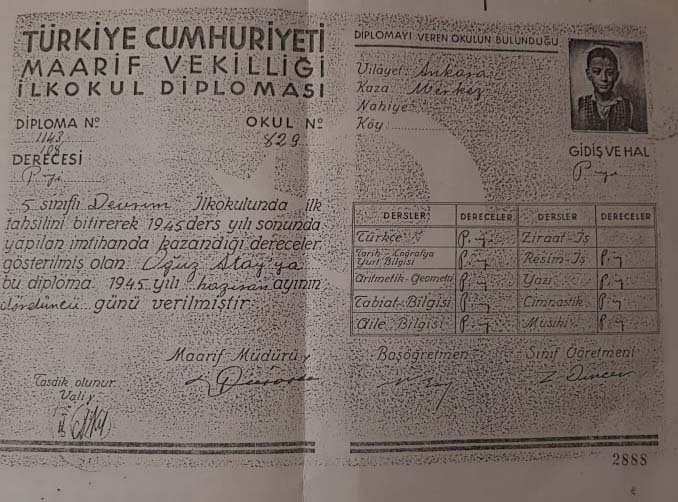 TÜRKİYE CUMHURİYETİ
MAARİF VEKİLLİĞİ
İLKOKUL DİPLOMASI
DİPLOMA Nº
1143
OKUL Nº
829
DERECESİ
P.iyi
5 sınıflı Devrim İlkokulunda ilk
tahsilini bitirerek 1945 ders yılı sonunda
yapılan imtihanda kazandığı dereceler
gösterilmiş olan Oğuz Atay'ya
bu diploma 1945 yılı haziran ayının
dördüncü günü verilmiştir
Maarif Müdürü
Tasdik olunur
Vali
DİPLOMAYI VEREN OKULUN BULUNDUĞU
Vilâyet: Ankara
Kaza Merkez
Nahiye
Köy:
GİDİŞ VE HAL
P.iyi
DERSLER DERECELER DERSLER DERECELER
Türkçe P.iy Ziraat-İş
Tarih-Coğrafya
Yurt Bilgisi P.iy Resim-İş P.iy
Aritmetik-Geometri P.iy Yazı P.iy
Tabiat Bilgisi P.iy Cimnastik P.iy
Aile Bilgisi P.iy Musiki P.iy
Başöğretmen Sınıf Öğretmeni
2888